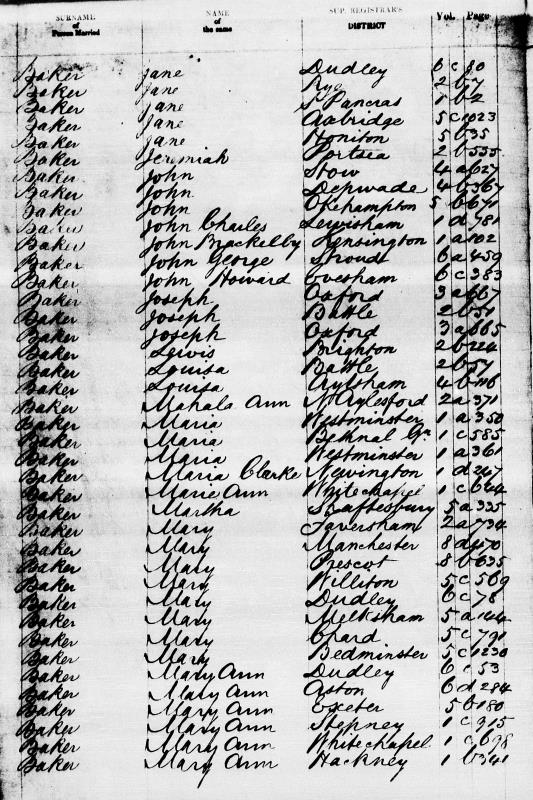 SURNAME of Person Married NAME of the same SUP. REGISTRAR'S DISTRICT Vol. Page
Baker Jane Dudley 6 c 80
Baker Jane Rye 2 b 7
Baker Jane S. Pancras 1 b 2
Baker Jane Axbridge 5 c 1023
Baker Jane Honiton 5 b 35
Baker Jeremiah Portsea 2 b 555
Baker John Stow 4 a 627
Baker John Depwade 4 b 567
Baker John Okehampton 5 b 671
Baker John Charles Lewisham 1 d 781
Baker John Brackelby Kensington 1 a 102
Baker John George Stroud 6 a 459
Baker John Howard Evesham 6 c 383
Baker Joseph Oxford 3 a
Baker Joseph Battle 2 b 51
Baker Joseph Oxford 3 a 665
Baker Lewis Brighton 2 b 224
Baker Louisa Battle 2 b 57
Baker Louisa Aylsham 4 b
Baker Mahala Ann N. Aylesford 2a 371
Baker Maria Westminster 1 a 350
Baker Maria Bethnal Gn 1 c 585
Baker Maria Westminster 1 a 361
Baker Maria Clarke Newington 1 d 247
Baker Marie Ann Whitechapel 1 c 644
Baker Martha Shaftesbury 5 a 335
Baker Mary Faversham 2 a 734
Baker Mary Manchester 8 d 470
Baker Mary Prescot 8 b 635
Baker Mary Williton 5 c 569
Baker Mary Dudley 6 c 78
Baker Mary Melksham 5 a 144
Baker Mary Chard 5 c 791
Baker Mary Bedminster 5 c 1230
Baker Mary Ann Dudley 6 c 53
Baker Mary Ann Aston 6 d 284
Baker Mary Ann Exeter 5 b 180
Baker Mary Ann Stepney 1 c 915
Baker Mary Ann Whitechapel 1 c 698
Baker Mary Ann Hackney 1 b 341